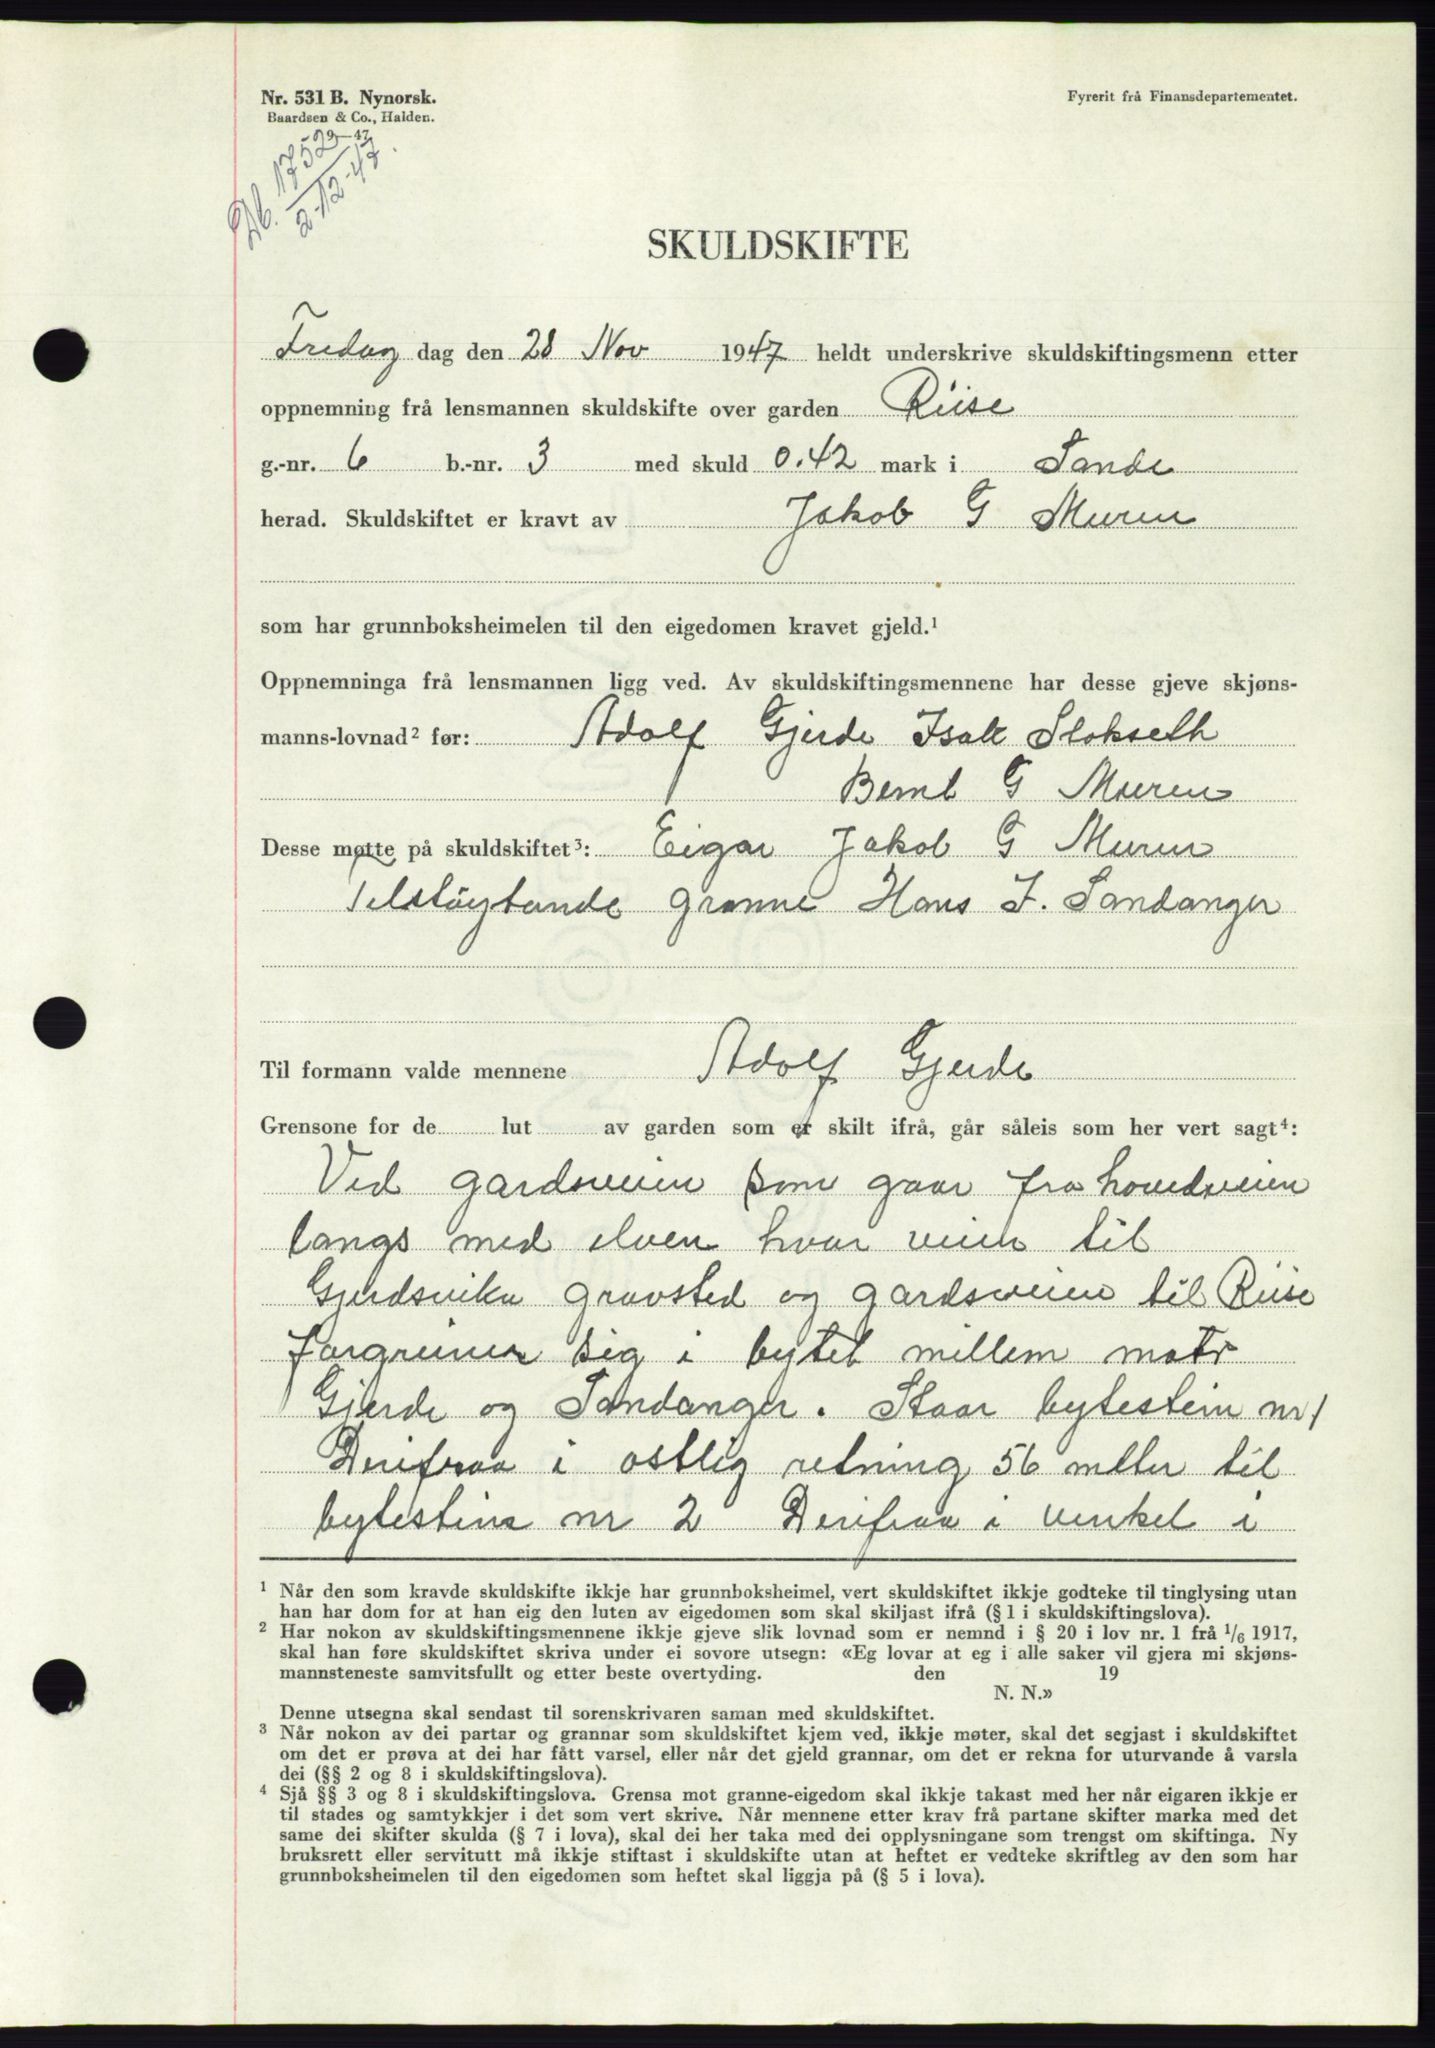 Nr. 531 B. Nynorsk.
Fyrerit frå Finansdepartementet.
Baardsen & Co., Halden.
9—47
Db. 1752
2-12-47.
SKULDSKIFTE
Fredag dag den 28 Nov 1947 heldt underskrive skuldskiftingsmenn etter
oppnemning frå lensmannen skuldskifte over garden Riise
g.-nr. 6 b.-nr. 3 med skuld 0.42 mark i Sande
herad. Skuldskiftet er kravt av Jakob G Muren
som har grunnboksheimelen til den eigedomen kravet gjeld.¹
Oppnemninga frå lensmannen ligg ved. Av skuldskiftingsmennene har desse gjeve skjøns-
manns-lovnad² før: Adolf Gjerde Isak Stokseth
Bernt G Muren
Desse møtte på skuldskiftet³: Eigar Jakob G Muren
Tilstøytande granne Hans J. Sandanger
Til formann valde mennene Adolf Gjerde
Grensone for de lut av garden som er skilt ifrå, går såleis som her vert sagt⁴:
Ved gardsveien som gaar fra hovedveien
langs med elven hvor veien til
Gjerdsvika gravsted og gardsveien til Riise
forgreiner sig i bytet millem matr
Gjerde og Sandanger. Staar bytestein nr 1
Derifraa i ostlig retning 56 meter til
bytestein nr 2 Derifraa i vinkel i
¹ Når den som kravde skuldskifte ikkje har grunnboksheimel, vert skuldskiftet ikkje godteke til tinglysing utan
han har dom for at han eig den luten av eigedomen som skal skiljast ifrå (§ 1 i skuldskiftingslova).
² Har nokon av skuldskiftingsmennene ikkje gjeve slik lovnad som er nemnd i § 20 i lov nr. 1 frå 1/6 1917,
skal han føre skuldskiftet skriva under ei sovore utsegn: «Eg lovar at eg i alle saker vil gjera mi skjøns-
mannsteneste samvitsfullt og etter beste overtyding. den 19
N. N.»
Denne utsegna skal sendast til sorenskrivaren saman med skuldskiftet.
³ Når nokon av dei partar og grannar som skuldskiftet kjem ved, ikkje møter, skal det segjast i skuldskiftet
om det er prøva at dei har fått varsel, eller når det gjeld grannar, om det er rekna for uturvande å varsla
dei (§§ 2 og 8 i skuldskiftingslova).
⁴ Sjå §§ 3 og 8 i skuldskiftingslova. Grensa mot granne-eigedom skal ikkje takast med her når eigaren ikkje er
til stades og samtykkjer i det som vert skrive. Når mennene etter krav frå partane skifter marka med det
same dei skifter skulda (§ 7 i lova), skal dei her taka med dei opplysningane som trengst om skiftinga. Ny
bruksrett eller servitutt må ikkje stiftast i skuldskifte utan at heftet er vedteke skriftleg av den som har
grunnboksheimelen til den eigedomen som heftet skal liggja på (§ 5 i lova).